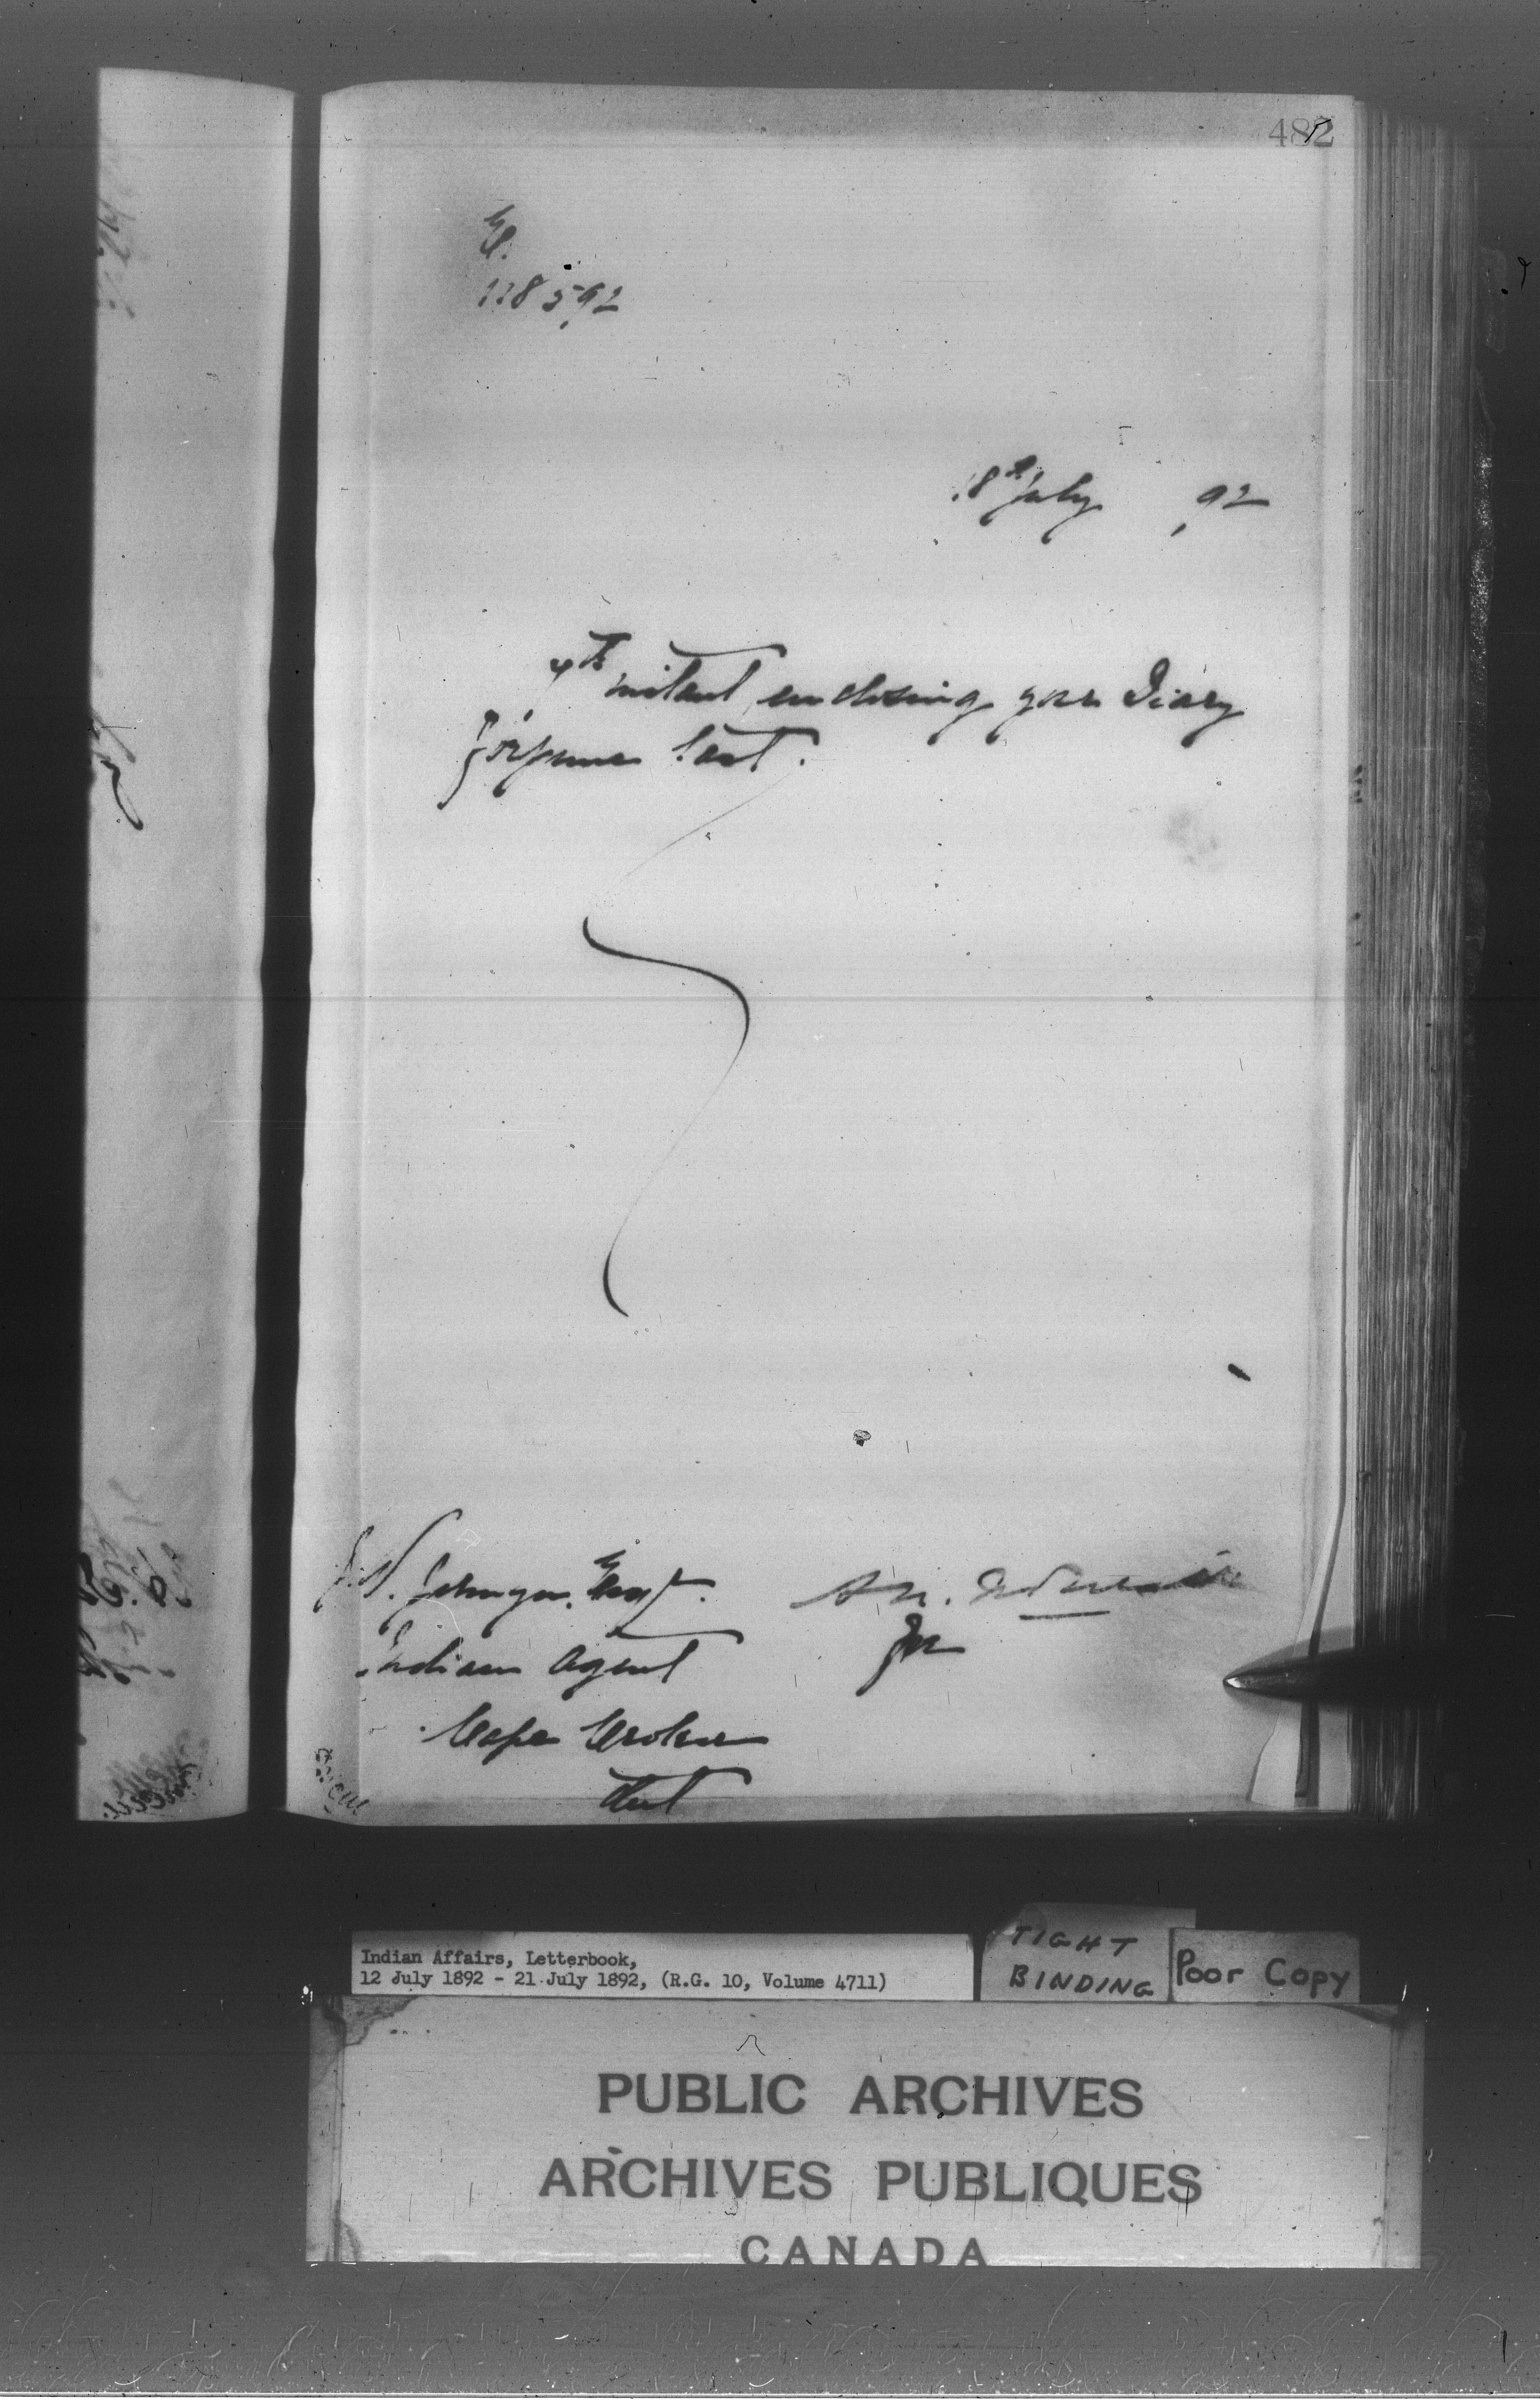 482
118592
18th July , 92
4th instant enclosing your Diary
for June last.
J.W. Jermyn, Esq.
Indian Agent
Cape Croker
Ont
for
Indian Affairs, Letterbook,
12 July 1892 - 21 July 1892, (R.G. 10, Volume 4711)
TIGHT
BINDING
Poor Copy
PUBLIC ARCHIVES
ARCHIVES PUBLIQUES
CANADA